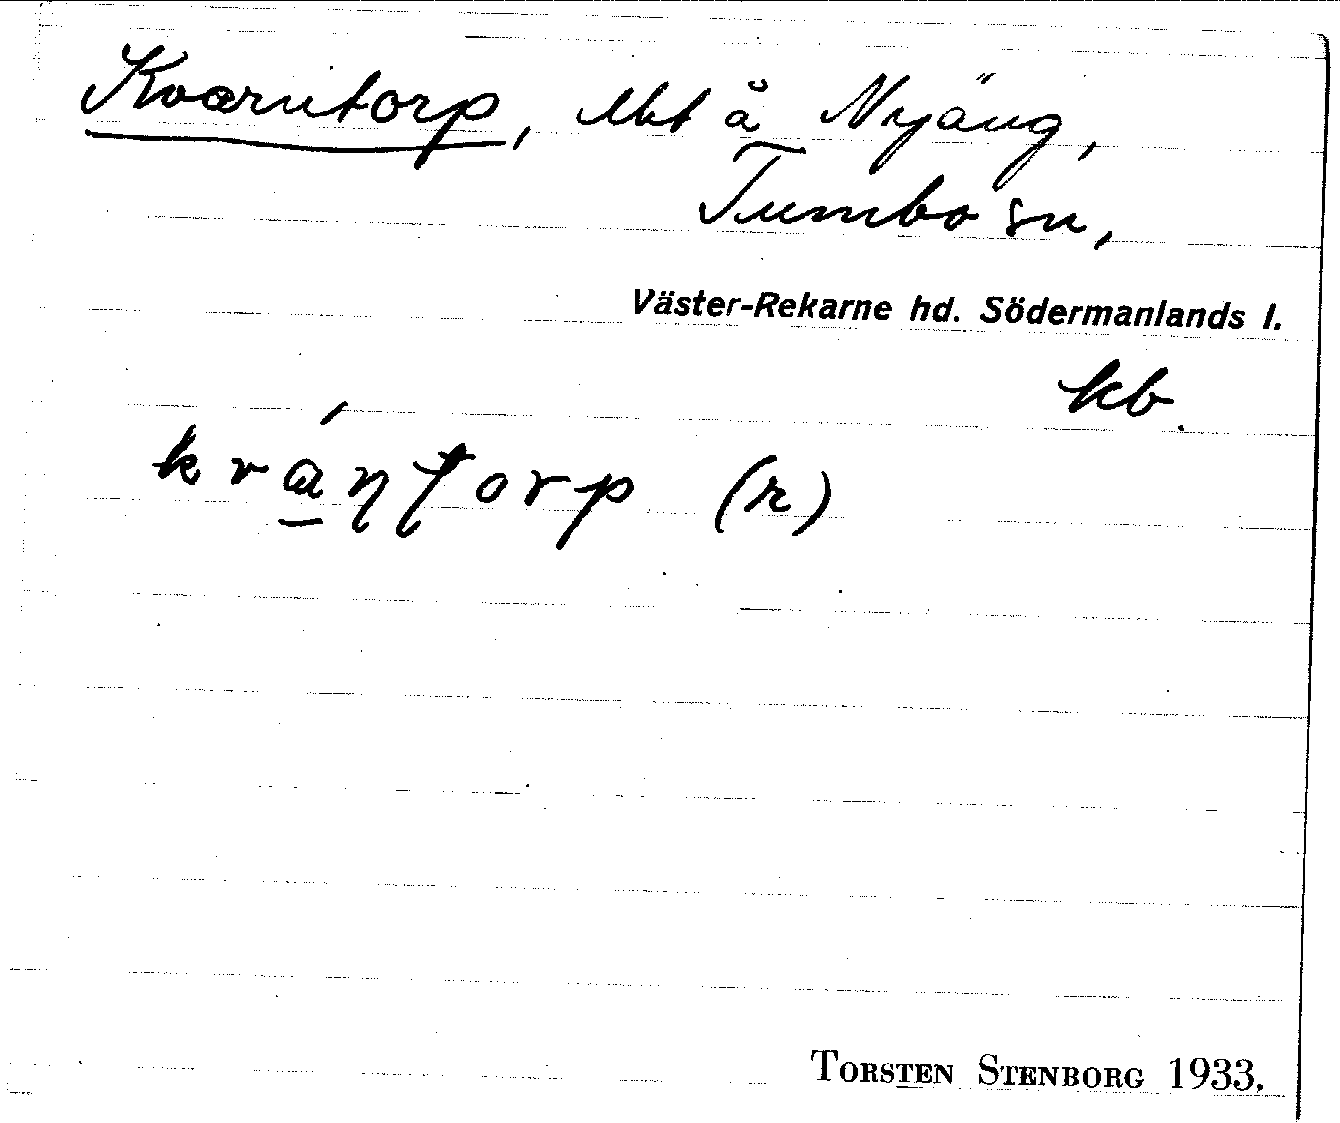 Kvarntorp, lht å Nyäng,
Tumbo sn,
Väster-Rekarne hd. Södermanlands l.
kb.
kvá̱ɳʈorp (r)
TORSTEN STENBORG 1933.